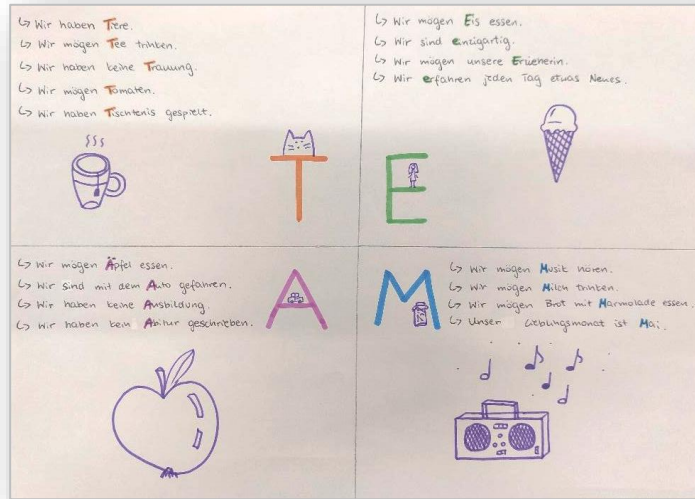 ↳ Wir haben Tiere.
↳ Wir mögen Tee trinken.
↳ Wir haben keine Trauung.
↳ Wir mögen Tomaten.
↳ Wir haben Tischtenis gespielt.
T
↳ Wir mögen Eis essen.
↳ Wir sind einzigartig.
↳ Wir mögen unsere Erzieherin.
↳ Wir erfahren jeden Tag etwas Neues.
E
↳ Wir mögen Äpfel essen.
↳ Wir sind mit dem Auto gefahren.
↳ Wir haben keine Ausbildung.
↳ Wir haben kein Abitur geschrieben.
A
M
↳ Wir mögen Musik hören.
↳ Wir mögen Milch trinken.
↳ Wir mögen Brot mit Marmolade essen.
↳ Unser Lieblingsmonat ist Mai.